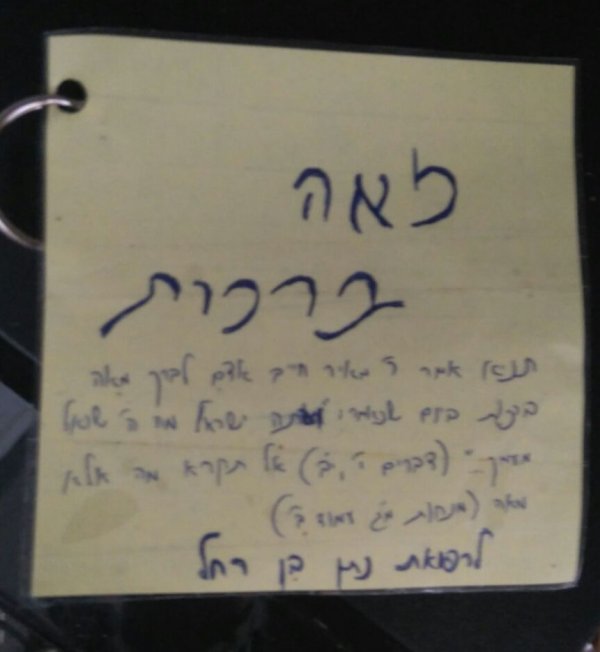 מאה
ברכות
תניא אמר ר' מאיר חייב אדם לברך מאה
ברכות ביום שנאמר ועתה ישראל מה ה' שואל
מעמך" (דברים י', י"ב) אל תקרא מה אלא
מאה (מנחות מ"ג עמוד ב')
לרפואת נתן בן רחל